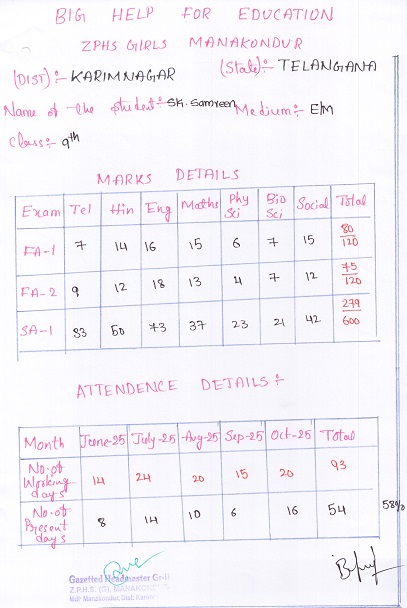 BIG HELP FOR EDUCATION
ZPHS GIRLS MANAKONDUR
(DIST) :- KARIMNAGAR (State) :- TELANGANA
Name of the student :- SK. Samreen Medium :- E/M
Class :- 9th
MARKS DETAILS
Exam Tel Hin Eng Maths Phy Sci Bio Sci Social Total
FA-1 7 14 16 15 6 7 15 80/120
FA-2 9 12 18 13 4 7 12 75/120
SA-1 33 50 73 37 23 21 42 279/600
ATTENDENCE DETAILS :-
Month June-25 July-25 Aug-25 Sep-25 Oct-25 Total
No. of Working days 14 24 20 15 20 93
No. of Present days 8 14 10 6 16 54 58%
Gazetted Headmaster Gr-II
Z.P.H.S. (G), MANAKONDUR
Mdl: Manakondur, Dist: Karim